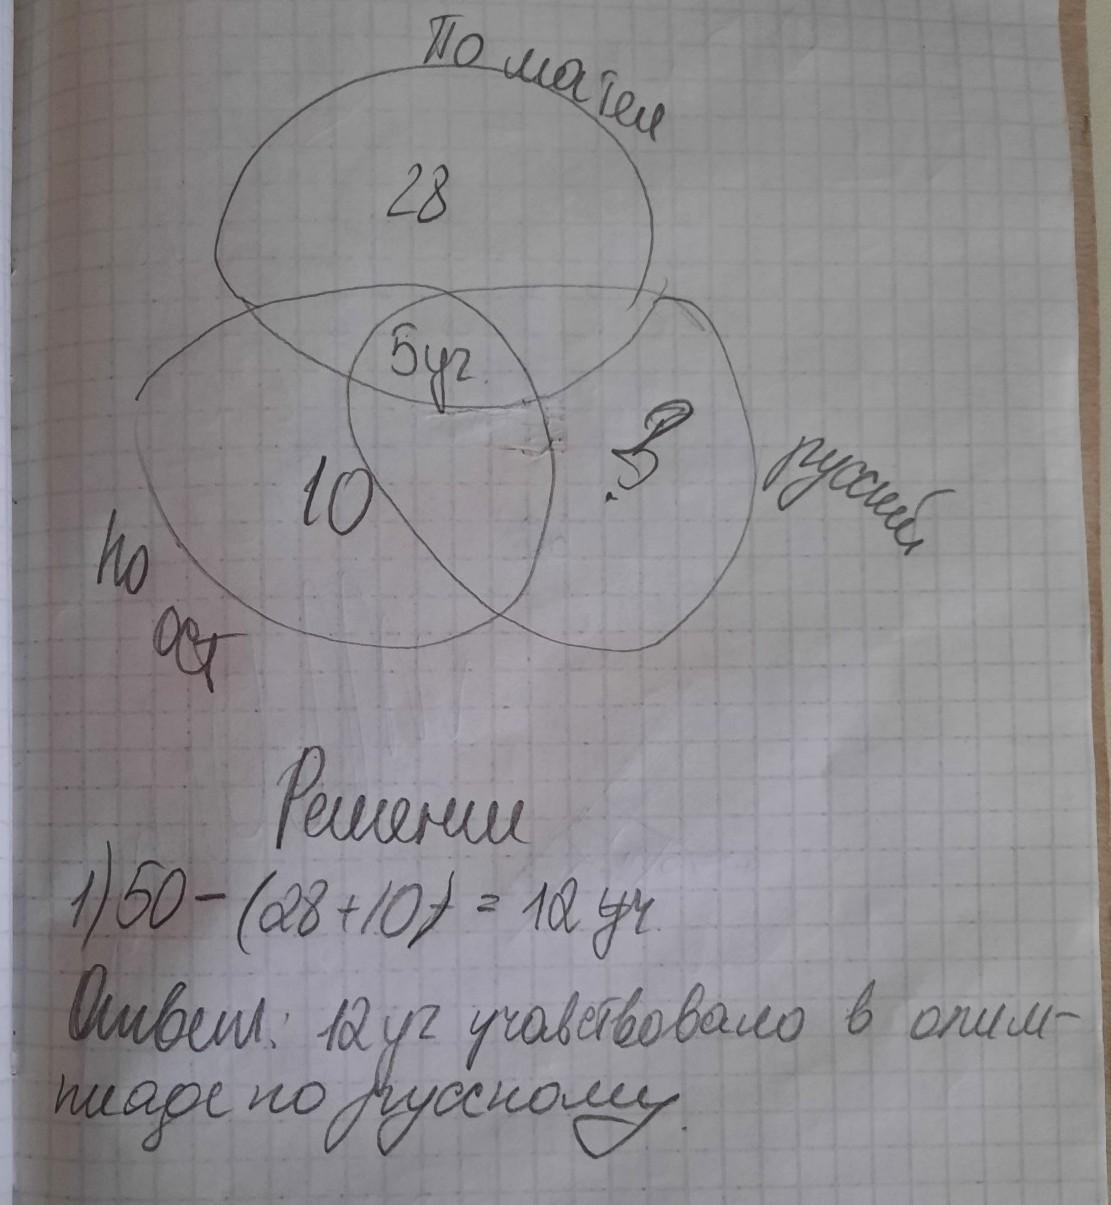 По матем
28
5уч.
10
?
русский
по
аст
Решении
1) 50 - (28+10) = 12 уч.
Ответ: 12 уч учавствовало в олим-
пиаде по русскому.